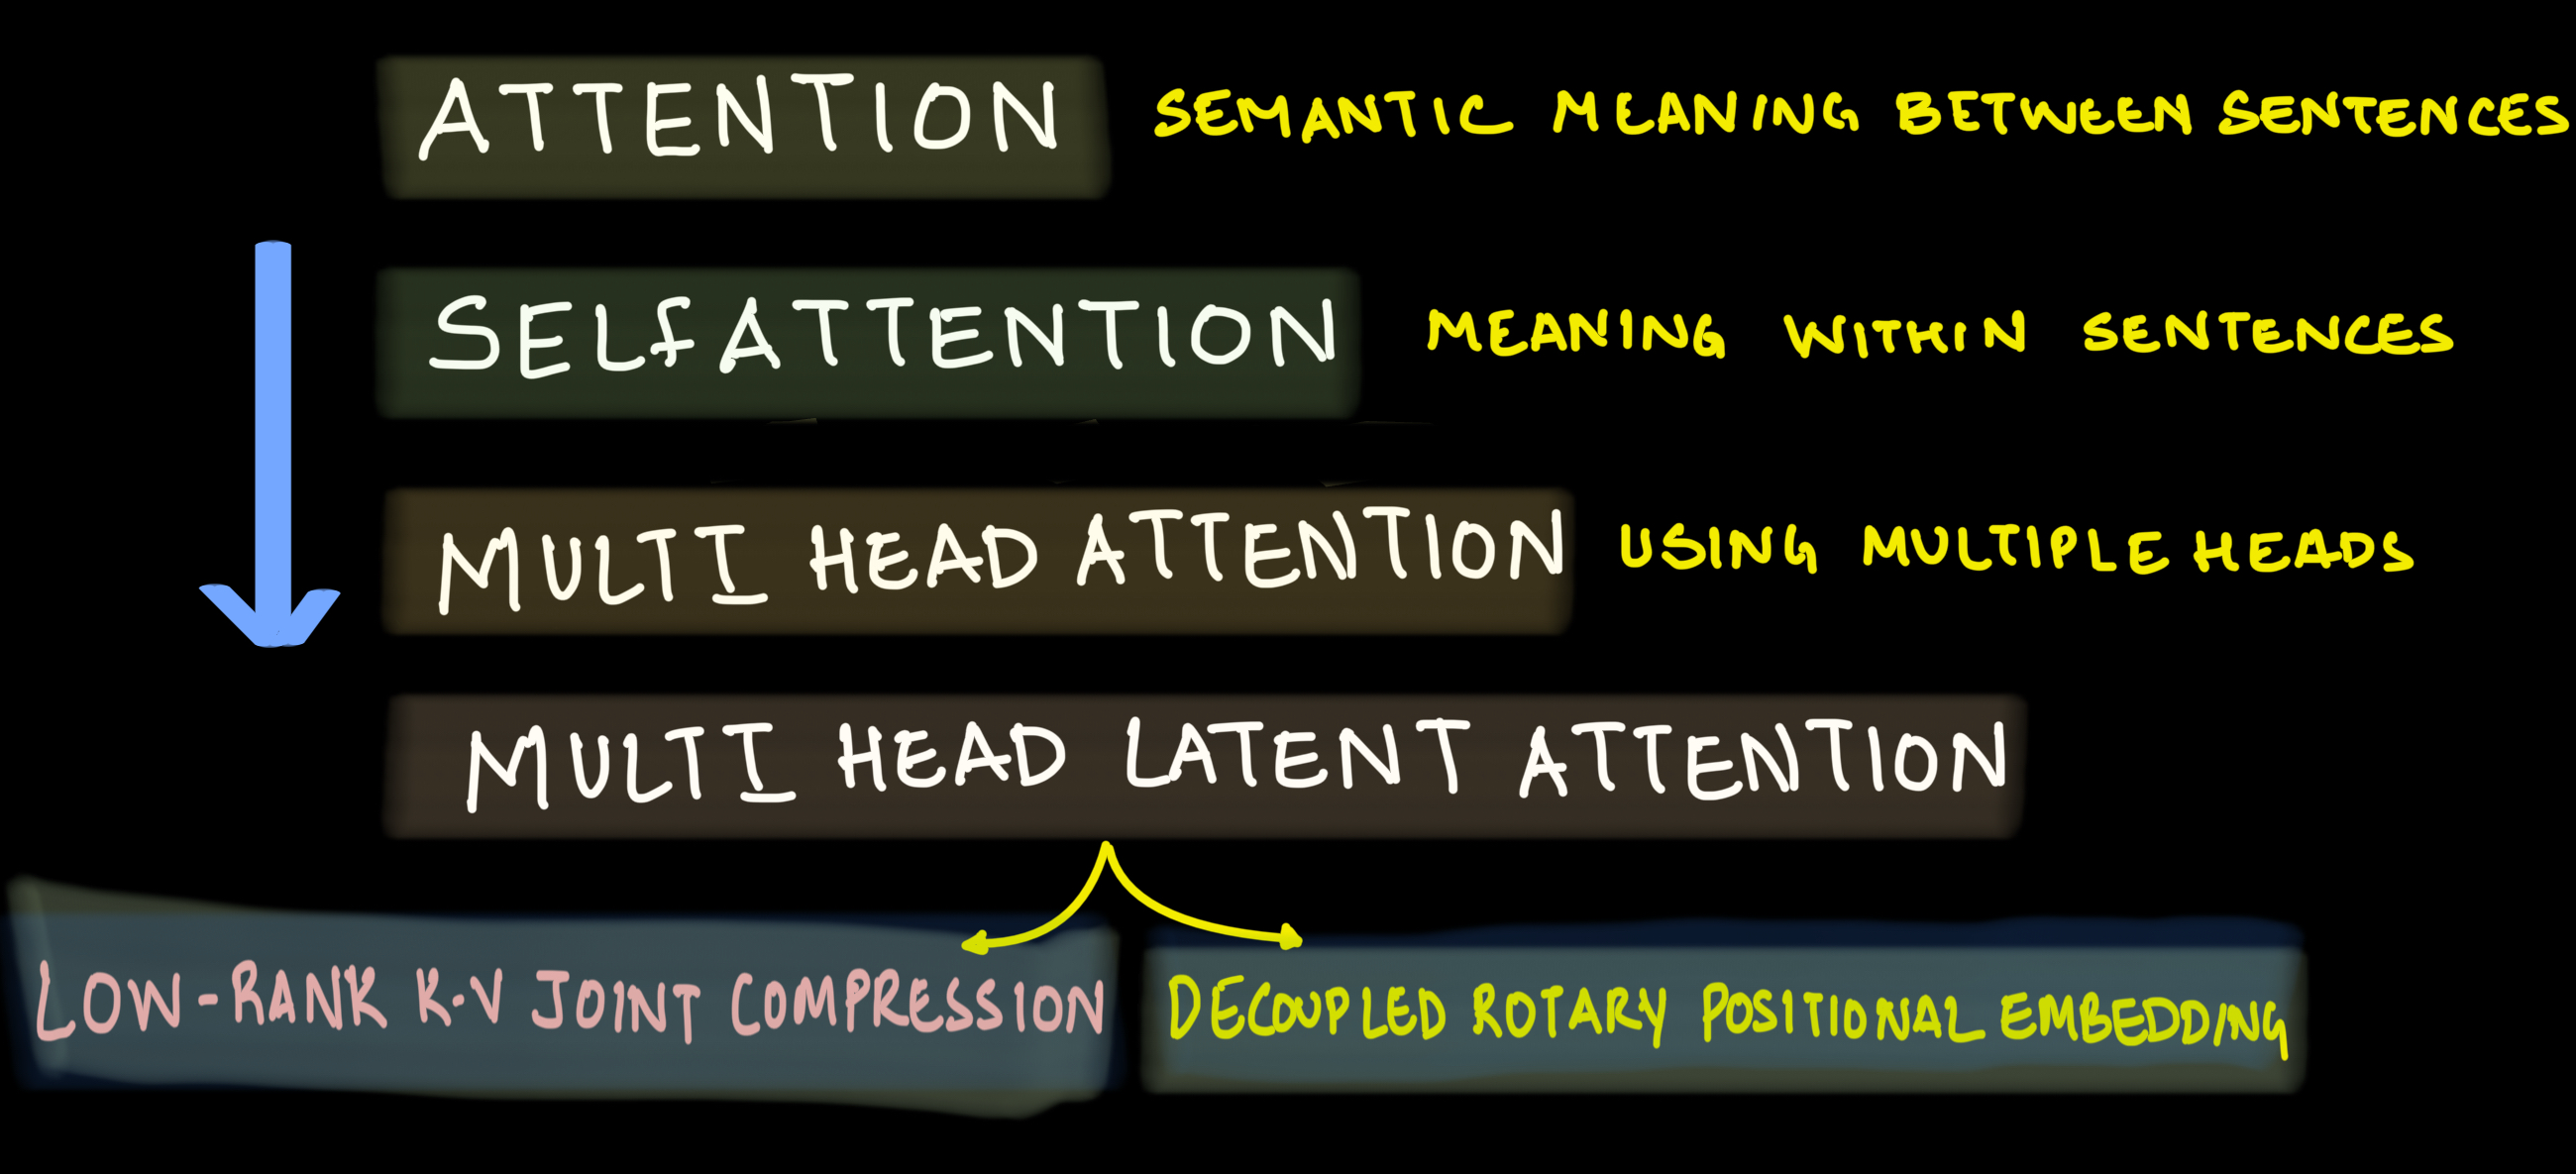 ATTENTION SEMANTIC MEANING BETWEEN SENTENCES
SELF ATTENTION MEANING WITHIN SENTENCES
MULTI HEAD ATTENTION USING MULTIPLE HEADS
MULTI HEAD LATENT ATTENTION
LOW-RANK K-V JOINT COMPRESSION DECOUPLED ROTARY POSITIONAL EMBEDDING